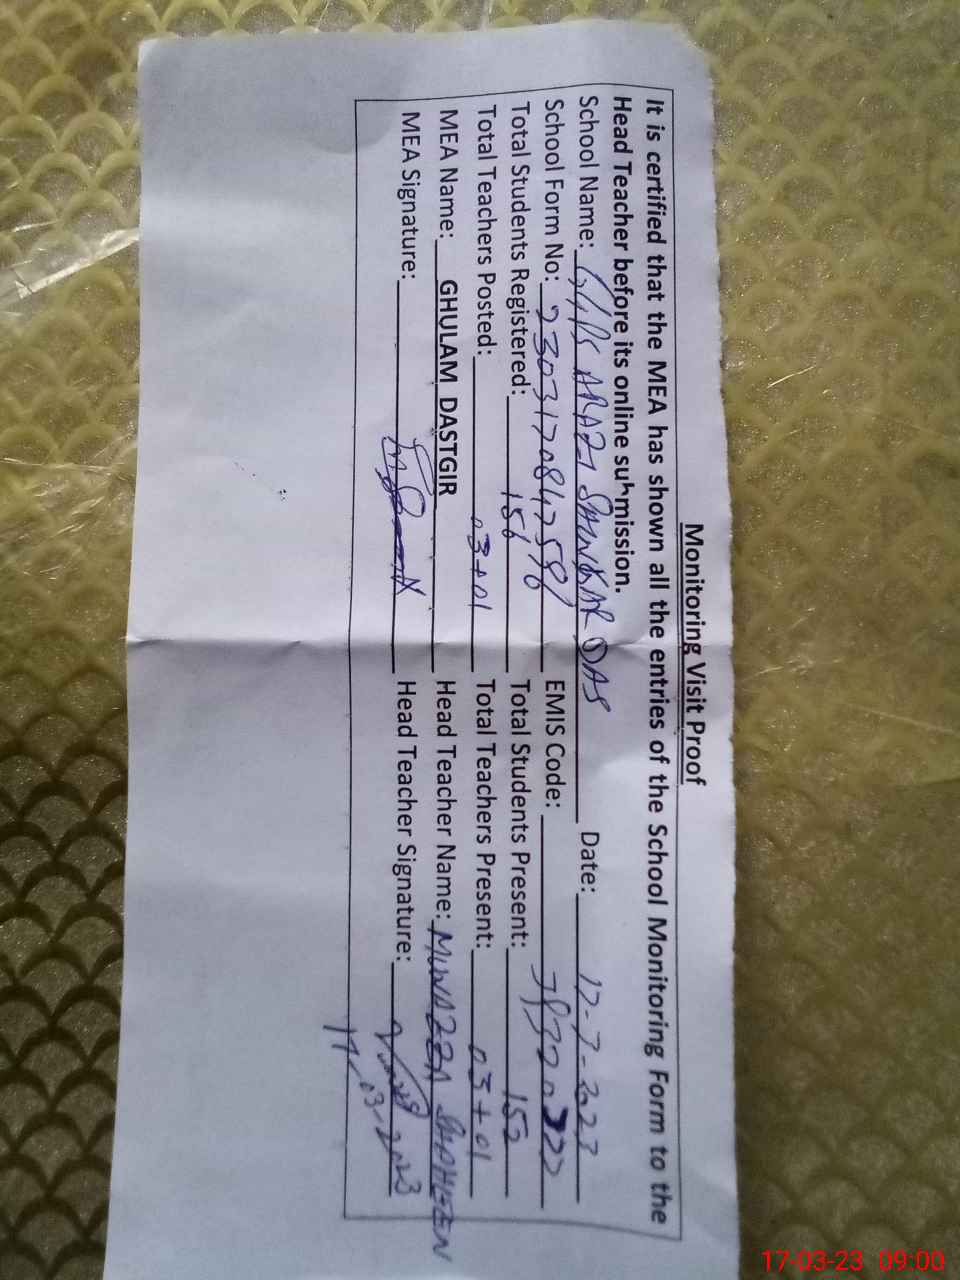 Monitoring Visit Proof
It is certified that the MEA has shown all the entries of the School Monitoring Form to the
Head Teacher before its online submission.
School Name: ARAZI SHANKAR DAS Date: 17-3-2023
School Form No: EMIS Code:
Total Students Registered: 156 Total Students Present: 152
Total Teachers Posted: 03+01 Total Teachers Present: 03+01
MEA Name: GHULAM DASTGIR Head Teacher Name: MUNAZZA SHAHEEN
MEA Signature: Head Teacher Signature:
17-03-2023
17-03-23 09:00